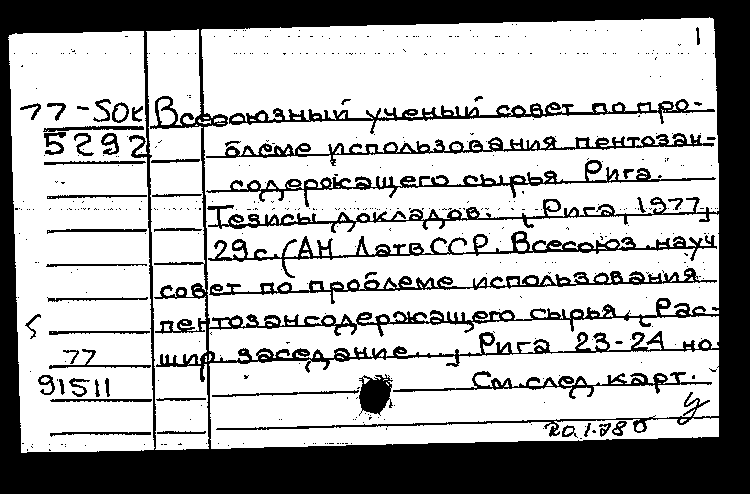 1
77-50к Всесоюзный ученый совет по про-
5292 блеме использования пентозан-
содержащего сырья. Рига.
Тезисы докладов. [Рига, 1977]
29с. (АН ЛатвССР. Всесоюз. науч
совет по проблеме использования
пентозансодержащего сырья. [Рас-
77 шир. заседание...], Рига 23-24 но
91511 См. след. карт.
20.1.78